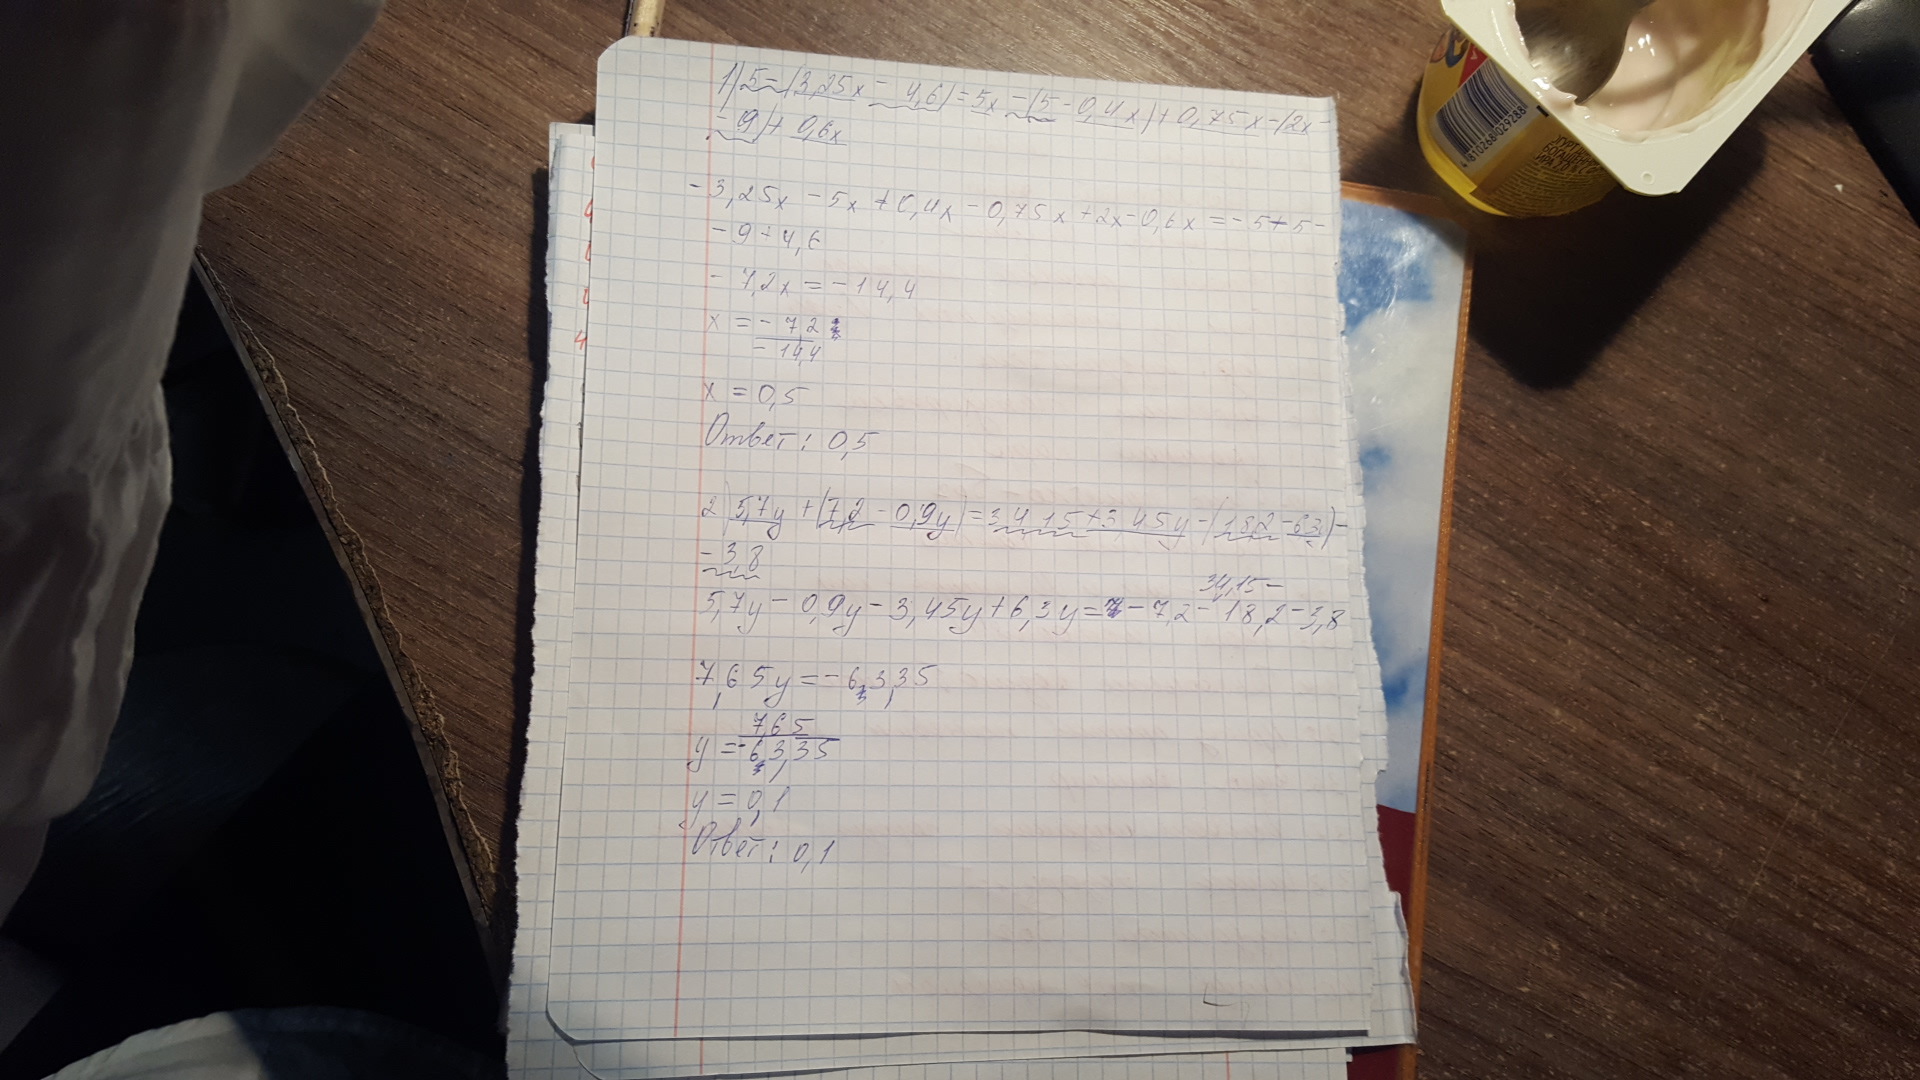 1) 5-(3,25x - 4,6)=5x-(5-0,4x)+0,75x-(2x-
-9)+0,6x
-3,25x-5x+0,4x-0,75x+2x-0,6x=-5+5-
-9-4,6
-7,2x=-14,4
x = -7,2
-14,4
x = 0,5
Ответ: 0,5
2) 5,7y+(7,2-0,9y)=34,15+3,45y-(18,2-6,3y)-
-3,8
34,15-
5,7y-0,9y-3,45y+6,3y=-7,2-18,2-3,8
7,65y=-63,35
7,65
y=-63,35
y=0,1
Ответ: 0,1
4
4810268029288